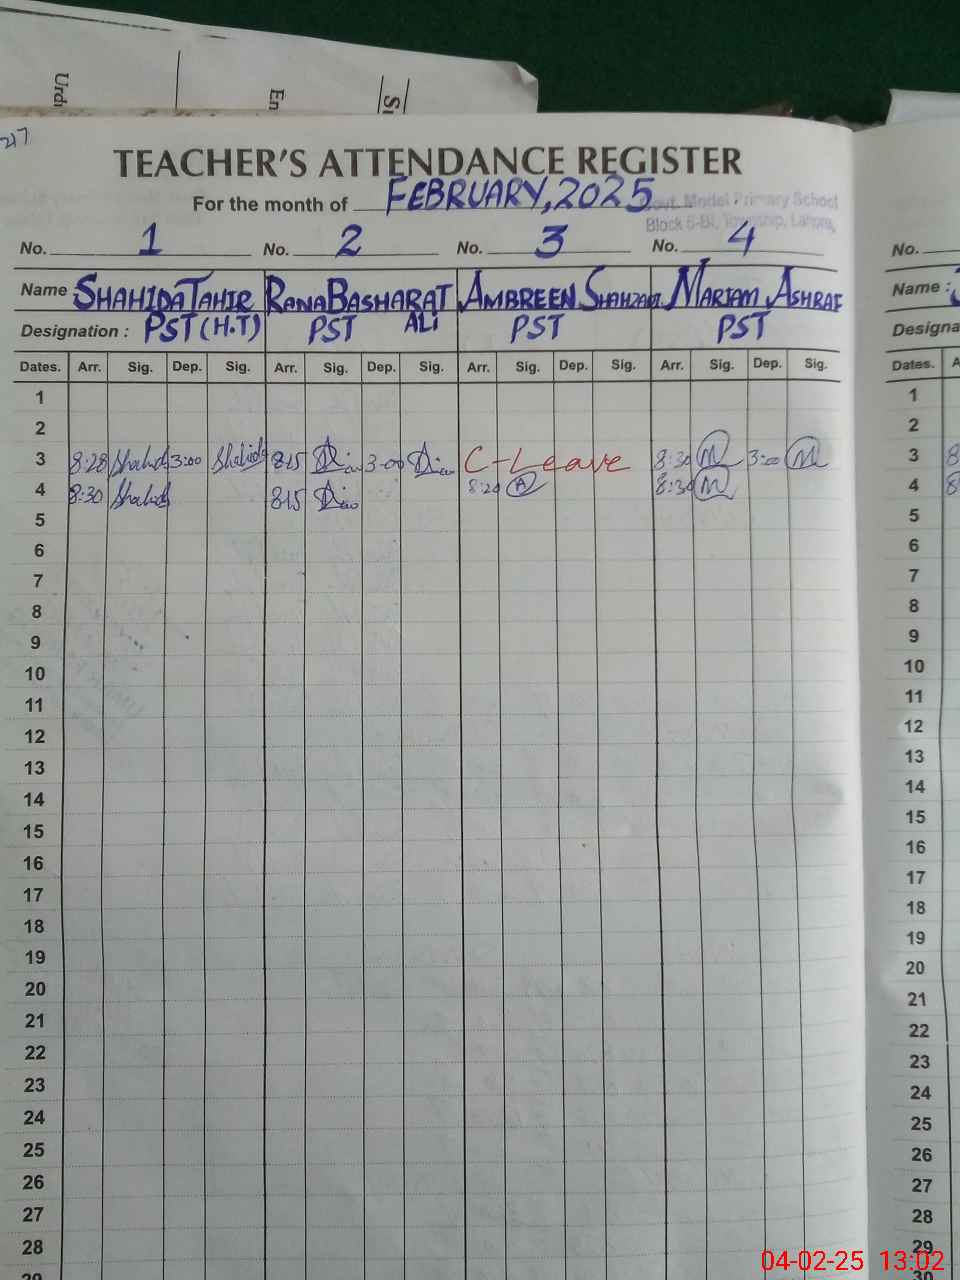 Urdu
En
217
TEACHER'S ATTENDANCE REGISTER
For the month of FEBRUARY, 2025
Govt. Model Primary School
Block 6-BI, Township, Lahore,
No. 1 No. 2 No. 3 No. 4 No.
Name : SHAHIDA TAHIR RANA BASHARAT ALI AMBREEN SHAHZADI MARIAM ASHRAF Name :
Designation : PST (H.T) PST PST PST Designa
Dates. Arr. Sig. Dep. Sig. Arr. Sig. Dep. Sig. Arr. Sig. Dep. Sig. Arr. Sig. Dep. Sig. Dates. A
1 1
2 2
3 8:28 Shahid 3:00 Shahida 8:15 3:00 C-Leave 8:30 M 3:00 M 3 8
4 8:30 Shahid 8:15 8:20 A 8:30 M 4 8
5 5
6 6
7 7
8 8
9 9
10 10
11 11
12 12
13 13
14 14
15 15
16 16
17 17
18 18
19 19
20 20
21 21
22 22
23 23
24 24
25 25
26 26
27 27
28 28
29 29
30
04-02-25 13:02